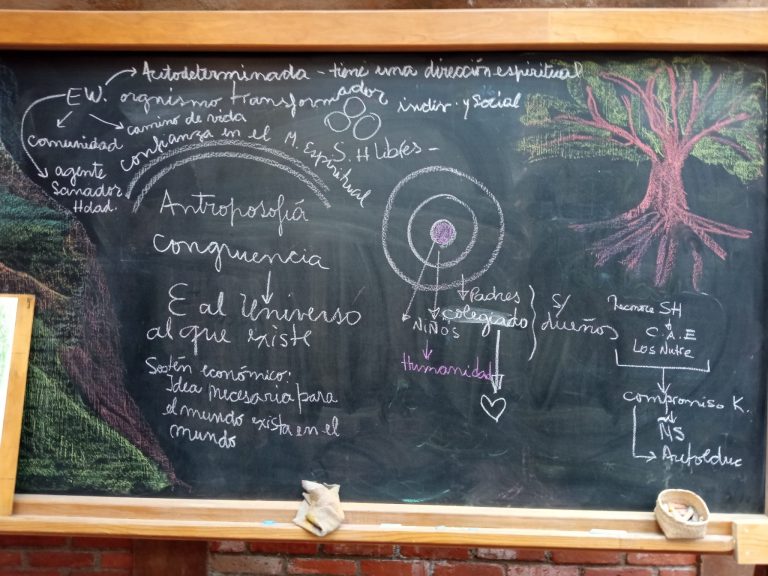 Autodeterminada - tiene una dirección espiritual
EW. orgnismo transformador indiv. y Social
comunidad
camino de vida
confianza en el M. Espiritual
S. H Libres -
agente
Sanador
Hdad.
Antroposofía
congruencia
E al Universo
al que existe
Sostén económico:
Idea necesaria para
el mundo exista en el
mundo
Padres
colegiado
NIÑOS
Humanidad
S/
dueños
SH
C.A.E
Los Nutre
compromiso K.
ÑS
AutoEduc